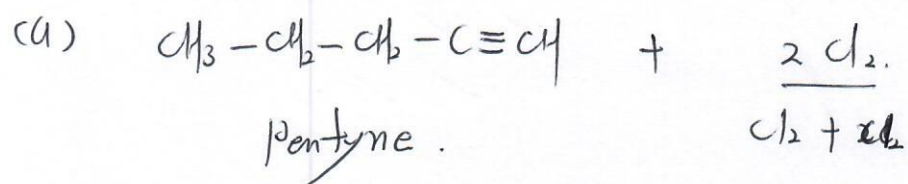 (a) CH₃ – CH₂ – CH₂ – C ≡ CH + 2 Cl₂.
Pentyne. Cl₂ + Cl₂